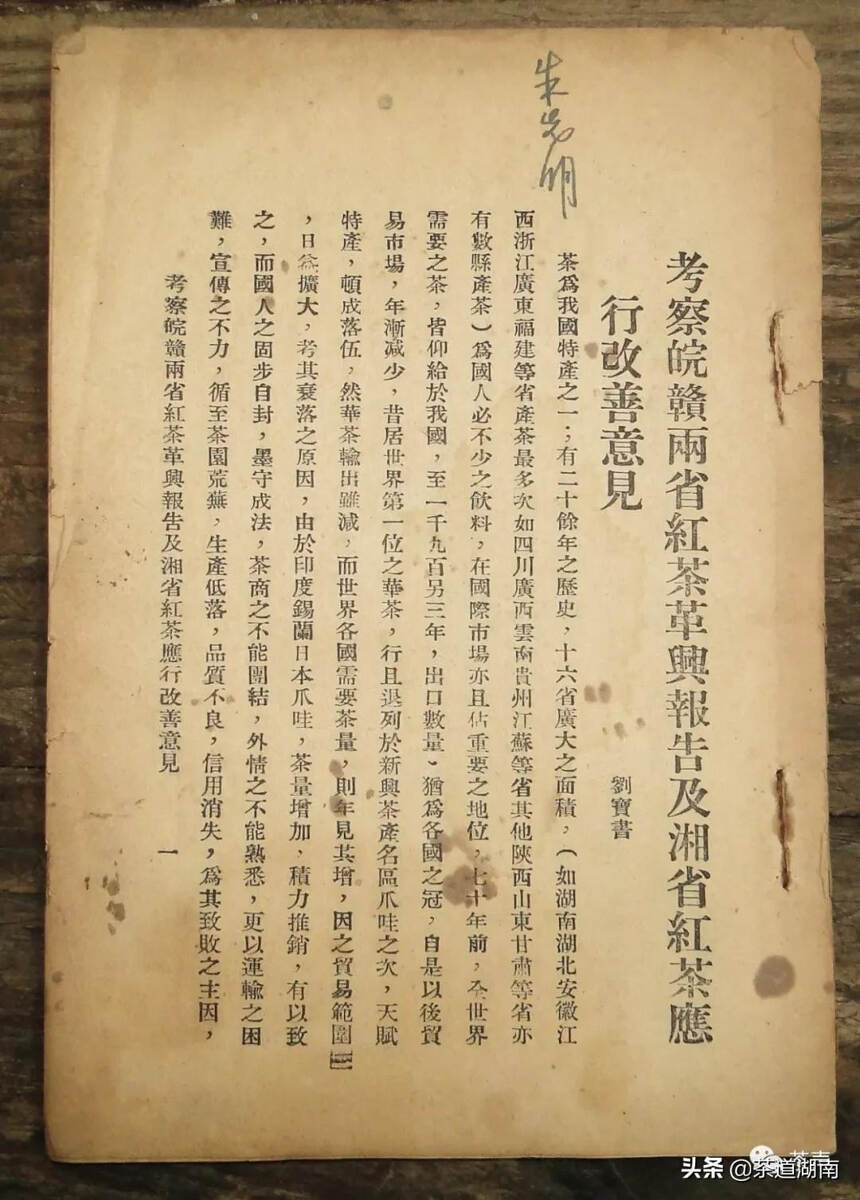 朱先明
考察皖贛兩省紅茶革興報告及湘省紅茶應
行改善意見
劉寶書
茶爲我國特產之一；有二十餘年之歷史，十六省廣大之面積，（如湖南湖北安徽江
西浙江廣東福建等省產茶最多次如四川廣西雲南貴州江蘇等省其他陝西山東甘肅等省亦
有數縣產茶）爲國人必不少之飲料，在國際市場亦且佔重要之地位，七十年前，全世界
需要之茶，皆仰給於我國，至一千九百另三年，出口數量、猶爲各國之冠，自是以後貿
易市場，年漸減少，昔居世界第一位之華茶，行且退列於新興茶產名區爪哇之次，天賦
特產，頓成落伍，然華茶輸出雖減，而世界各國需要茶量，則年見其增，因之貿易範圍
，日益擴大，考其衰落之原因，由於印度錫蘭日本爪哇，茶量增加，積力推銷，有以致
之，而國人之固步自封，墨守成法，茶商之不能團結，外情之不能熟悉，更以運輸之困
難，宣傳之不力，循至茶園荒蕪，生產低落，品質不良，信用消失，爲其致敗之主因，
考察皖贛兩省紅茶革興報告及湘省紅茶應行改善意見 一
茶青
头条 @茶道湖南